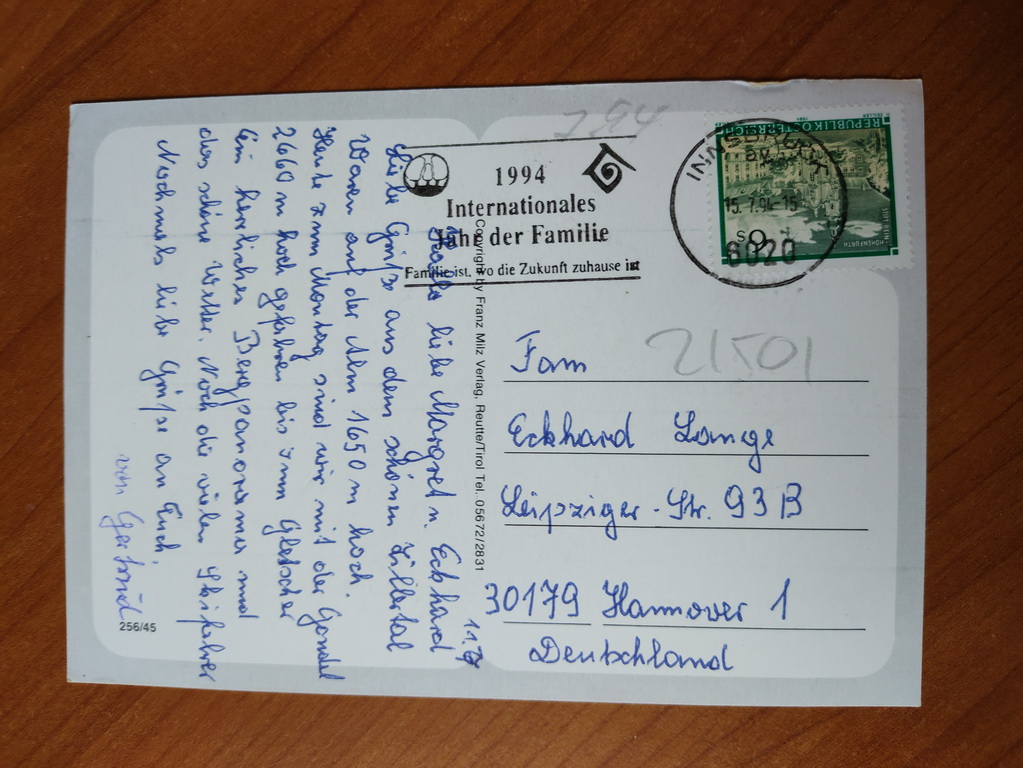 11.7.
Hallo liebe Margret u. Eckhard
Liebe Grüße aus dem schönen Zillertal
Waren auf der Alm 1650 m hoch.
Heute zum Montag sind wir mit der Gondel
2660 m hoch gefahren bis zum Gletscher
Ein herrliches Bergpanorama und
das schöne Wetter. Noch die vielen Skifahrer
Nochmals liebe Grüße an Euch
von Gertrud
256/45
Copyright by Franz Milz Verlag, Reutte/Tirol Tel. 05672/2831
7.94
1994
Internationales
Jahr der Familie
Familie ist, wo die Zukunft zuhause ist
INNSBRUCK
15.7.94-15
6020
REPUBLIK ÖSTERREICH
STIFT REIN
HOHENFURTH
21501
Fam
Eckhard Lange
Leipziger-Str. 93 B
30179 Hannover 1
Deutschland